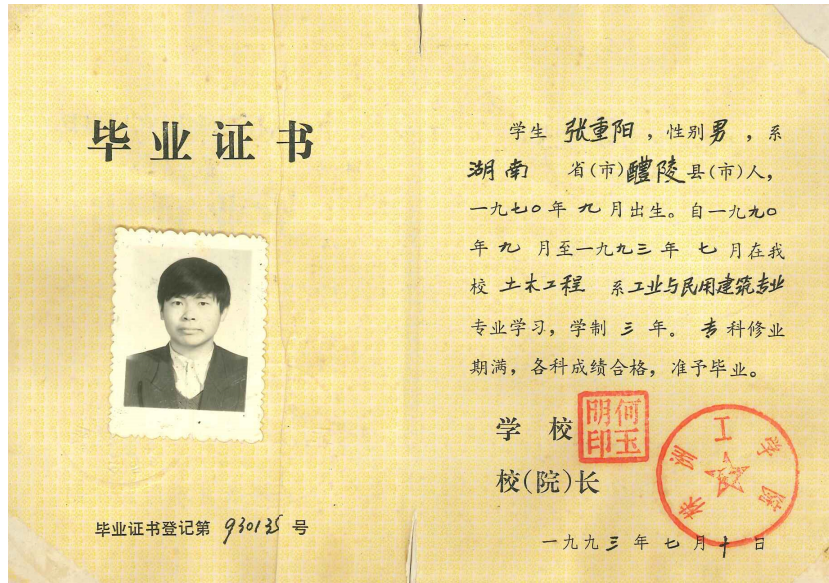 毕业证书
毕业证书登记第 930135 号
学生 张重阳 ，性别 男 ，系
湖南 省(市) 醴陵 县(市)人，
一九七〇年 九 月出生。自一九九〇
年 九 月至一九九三年 七 月在我
校 土木工程 系 工业与民用建筑专业
专业学习，学制 三 年。 专 科修业
期满，各科成绩合格，准予毕业。
学 校
校(院)长
何玉明印
工学院
一九九三 年 七 月 十 日